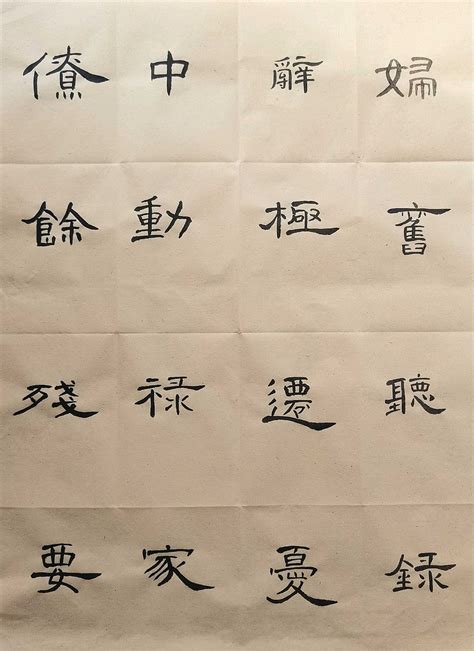 婦舊聽録
辭極遷憂
中動禄家
僚餘殘要